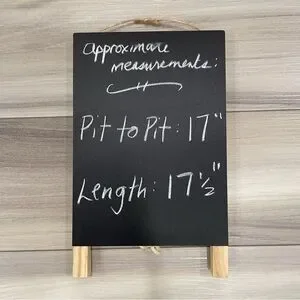 approximate
measurements:
Pit to Pit: 17"
Length: 17 1/2"